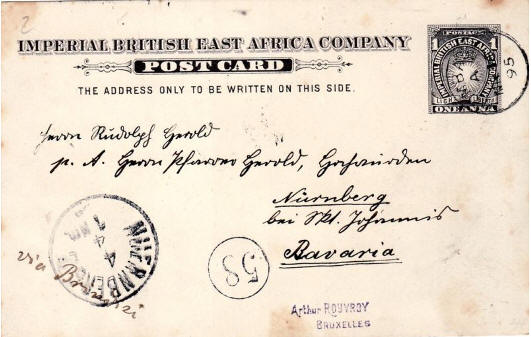 IMPERIAL BRITISH EAST AFRICA COMPANY
POST CARD
THE ADDRESS ONLY TO BE WRITTEN ON THIS SIDE.
POSTAGE
1 IMPERIAL BRITISH EAST AFRICA COMPANY 1
ONE ANNA
95
Herrn Rudolph Herold
p. A. Herrn Pfarrer Herold, Hochwürden
Nürnberg
bei Skt. Johannis
Bavaria
NUERNBERG
4
via Brindisi
58
Arthur ROUVROY
BRUXELLES